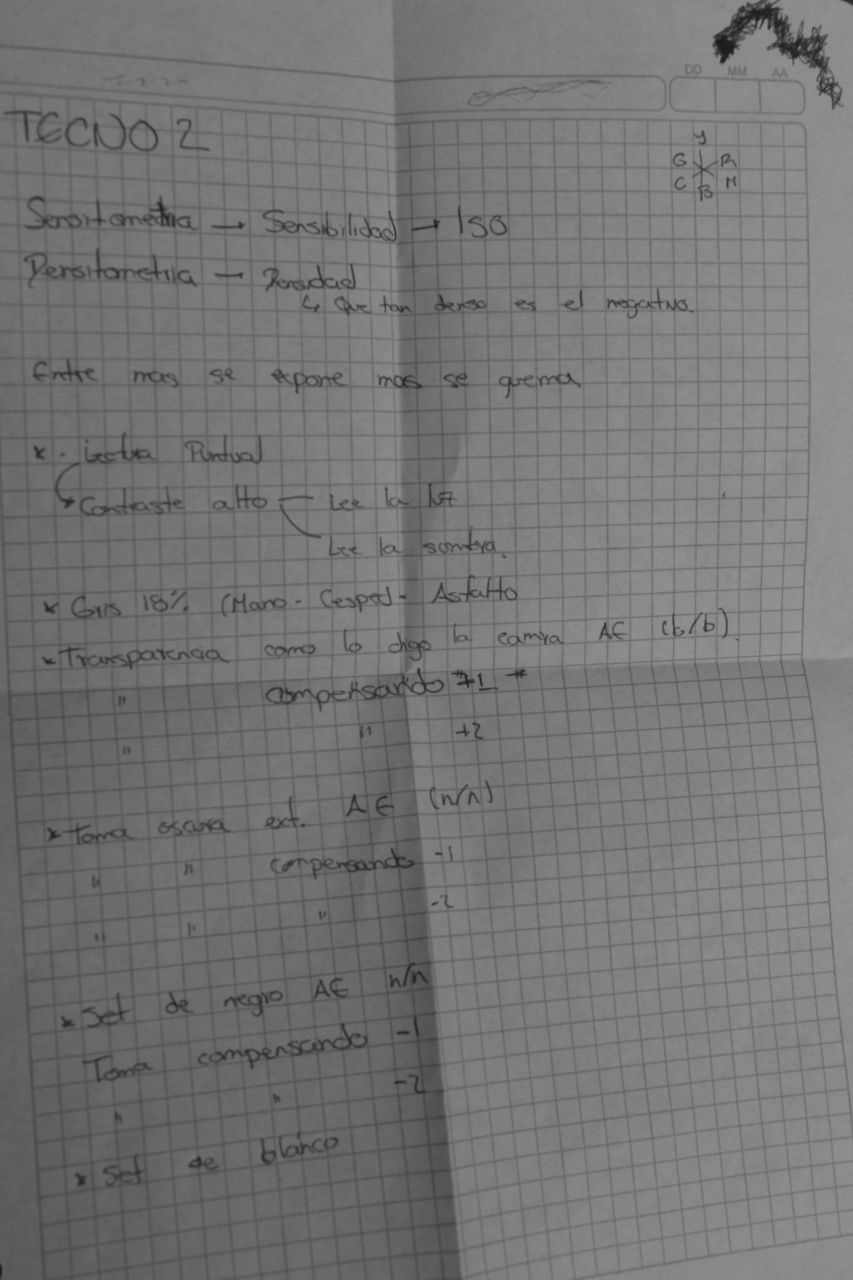 DD MM AA
TECNO 2
Y
G R
C B M
Sensitometria → Sensibilidad → ISO
Densitometria → Densidad
↳ Que tan denso es el negativo.
Entre mas se expone mas se quema
* . Lectura Puntual
Contraste alto Lee la luz
Lee la sombra.
* Gris 18% (Mano - Cesped - Asfalto
* Transparencia como lo digo la camra AE (b/b)
" compensando +1 *
" " +2
* Toma oscura ext. AE (n/n)
" " compensando -1
" " " -2
* Set de negro AE n/n
Toma compensando -1
" " -2
* Set de blanco